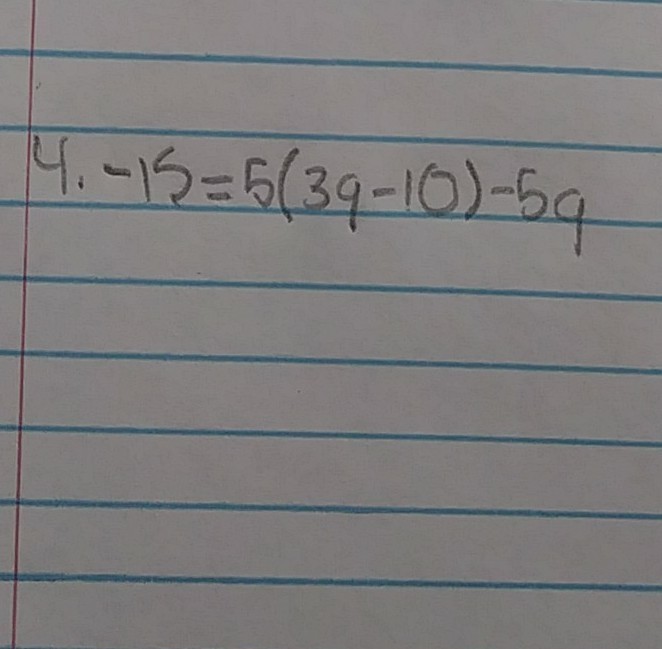 4. -15=5(3q-10)-5q